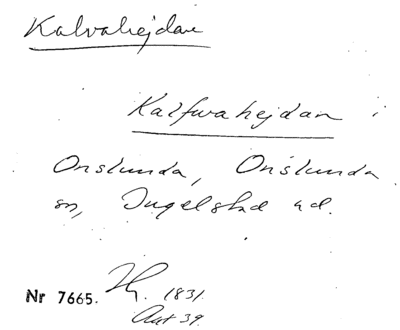 Kalvahejdan
Kalfwahejdan i
Onslunda, Onslunda
sn, Ingelstad hd.
Nr 7665. 1831.
Akt 39.